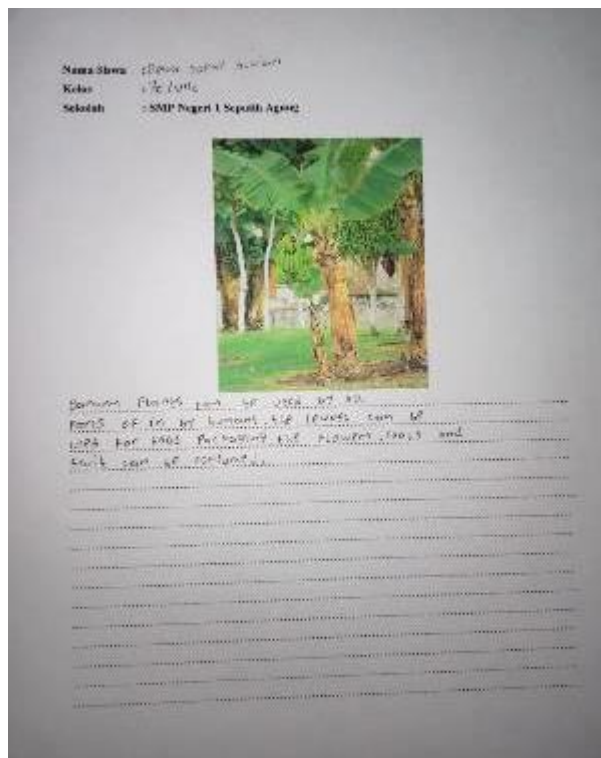 Nama Siswa :
Kelas :
Sekolah : SMP Negeri 1 Seputih Agung
Banana Plants can be used by all
parts of it by humans the leaves can be
used for food Packaging the Flowers, and
fruit can be